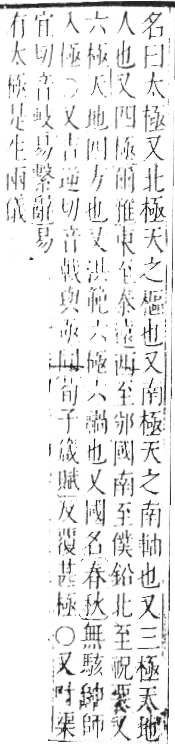 名曰太極又北極天之樞也又南極天之南軸也又三極天地
人也又四極爾雅東至泰遠西至邠國南至僕鉛北至祝栗又
六極天地四方也又洪範六極六禍也又國名春秋無駭帥師
入極〇又吉逆切音戟與亟同荀子箴賦反覆甚極〇又叶渠
宜切音岐易繫辭易
有太極是生兩儀